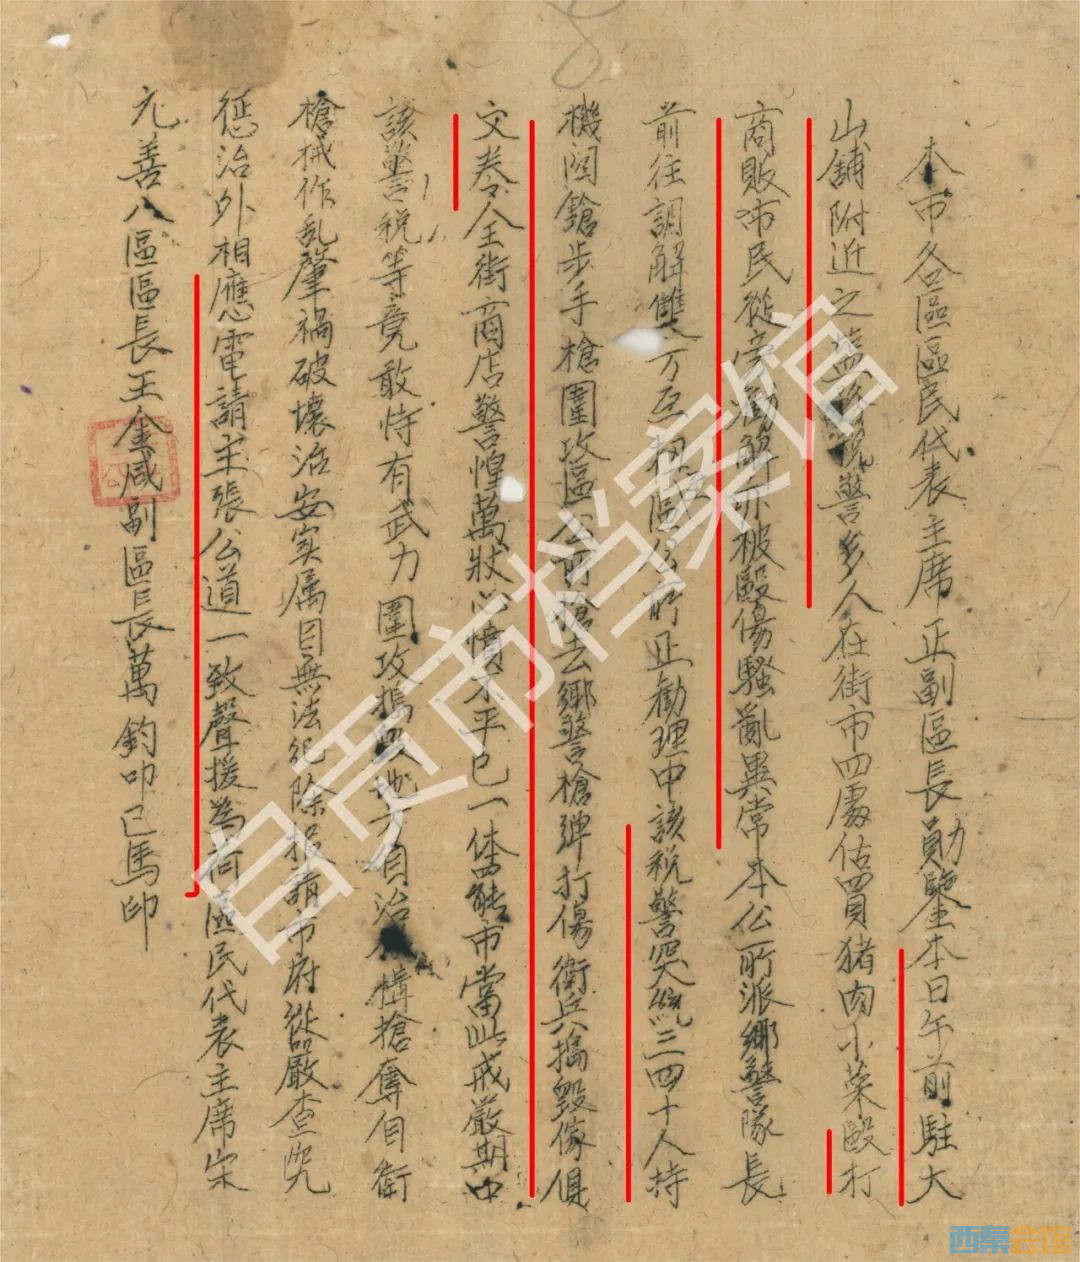 本市各區區民代表主席正副區長勛鑒本日午前駐大
山舖附近之鹽務稅警多人在街市四處估買猪肉小菜毆打
商販市民從旁勸解亦被毆傷騷亂異常本公所派鄉警隊長
前往調解雙方互扭區公所正勸理中該稅警突統三四十人持
機関鎗步手槍圍攻區公所搶去鄉警槍彈打傷衛兵搗毀傢俱
文卷令全街商店警惶萬狀心憤不平已一体罷市當此戒嚴期中
該警稅等竟敢恃有武力圍攻搗毀地方自治機構搶奪自衛
槍械作乱肇禍破壞治安实属目無法紀除报請市府從嚴查究
懲治外相應電請主張公道一致聲援為荷區民代表主席宋
元善八區區長王金咸副區長萬鈞叩已馬印
自贡市档案馆
西秦会馆